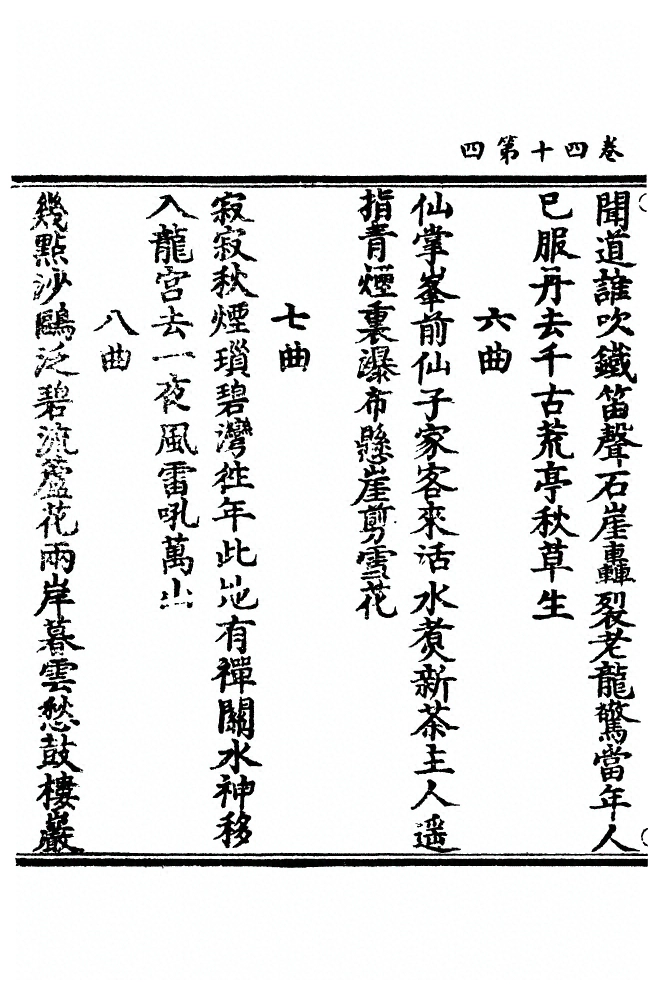 卷四十第四
聞道誰吹鐵笛聲石崖轟裂老龍驚當年人
已服丹去千古荒亭秋草生
六曲
仙掌峯前仙子家客來活水煑新茶主人遥
指青煙裏瀑布懸崖剪雪花
七曲
寂寂秋煙瑣碧灣徃年此地有禪關水神移
入龍宫去一夜風雷吼萬山
八曲
幾點沙鷗泛碧流蘆花兩岸暮雲愁鼓樓巖